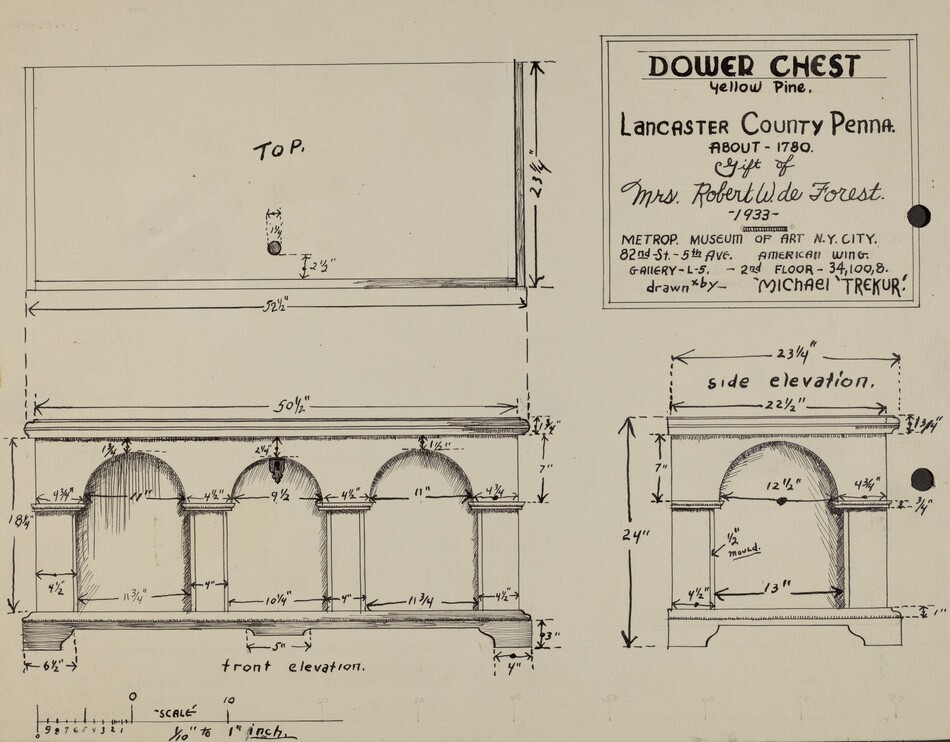 DOWER CHEST
Yellow Pine.
LANCASTER COUNTY PENNA.
ABOUT - 1780.
Gift of
Mrs. Robert W. de Forest.
-1933-
METROP. MUSEUM OF ART N.Y. CITY.
82nd St. - 5th AVE. AMERICAN WING.
GALLERY - L-5. - 2nd FLOOR - 34,100,8.
drawn by - MICHAEL TREKUR.
TOP.
23 1/4"
1 1/4"
2 1/2"
52 1/2"
50 1/2"
1 3/4"
1 3/4"
2 1/4"
1 1/2"
7"
4 3/4"
11"
4 1/2"
9 1/2
4 1/2"
11"
4 3/4
18 1/4"
4 1/2"
4"
11 3/4"
10 1/4"
4"
11 3/4
4 1/2"
3"
5"
6 1/2"
4"
front elevation.
23 1/4"
side elevation.
22 1/2"
1 3/4"
7"
12 1/2"
4 3/4"
3/4"
24"
1/2"
mould.
4 1/2"
13"
1"
0
10
9 8 7 6 5 4 3 2 1
"SCALE"
1/10" to 1" inch.